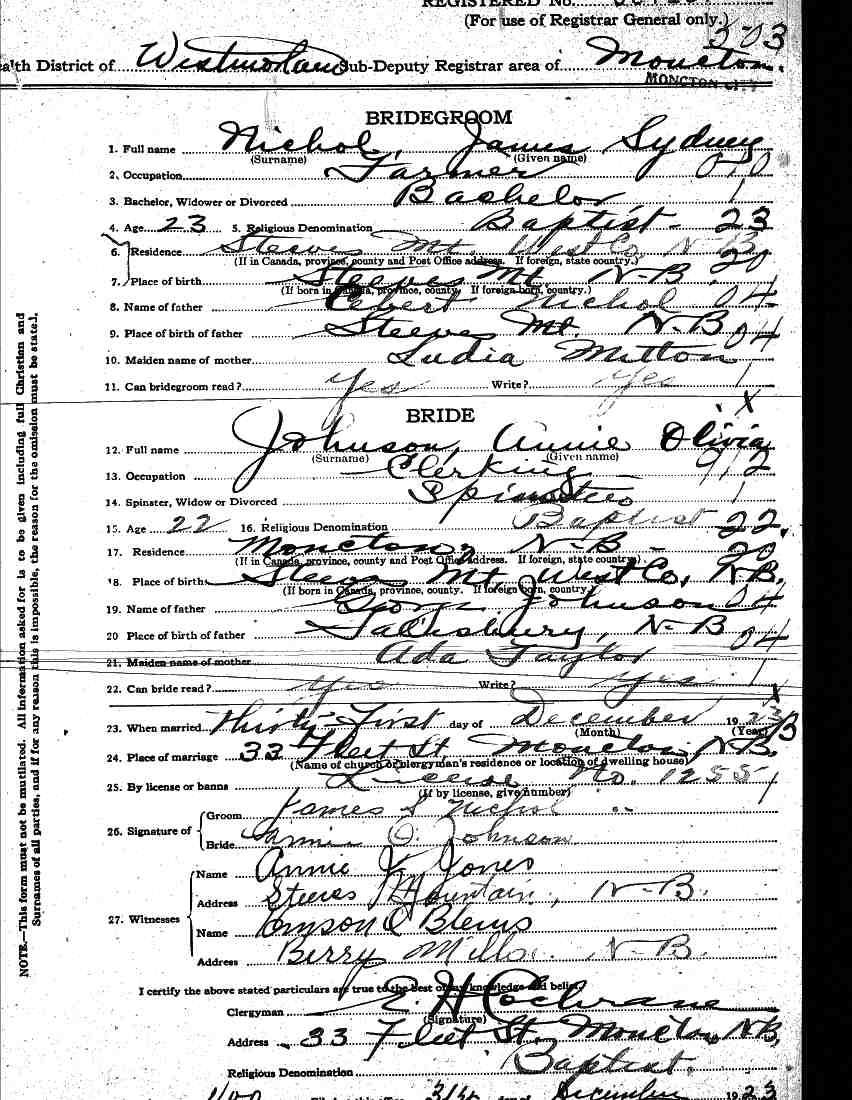 REGISTERED No.
(For use of Registrar General only.)
303
alth District of Westmorland Sub-Deputy Registrar area of Moncton.
MONCTON CITY
BRIDEGROOM
1. Full name Nichol, James Sydney
(Surname) (Given name)
2. Occupation Farmer 010
3. Bachelor, Widower or Divorced Bachelor 1
4. Age 23 5. Religious Denomination Baptist - 23
6. Residence Steeves Mt. West Co. N-B. 20
(If in Canada, province, county and Post Office address. If foreign, state country.)
7. Place of birth Steeves Mt N-B.
(If born in Canada, province, county. If foreign born, country.)
8. Name of father Nichol 04
9. Place of birth of father Steeves Mt. N-B 04
10. Maiden name of mother Ludia Mitton
11. Can bridegroom read? yes Write? yes 1
X
BRIDE
12. Full name Johnson, Annie Olivia
(Surname) (Given name)
13. Occupation Clerking 912
14. Spinster, Widow or Divorced Spinster 1
15. Age 22 16. Religious Denomination Baptist 22.
17. Residence Moncton, N-B - 20
(If in Canada, province, county and Post Office address. If foreign, state country.)
18. Place of birth Steeves Mt, West Co, N-B.
(If born in Canada, province, county. If foreign born, country.)
19. Name of father George Johnson 04
20 Place of birth of father Salisbury, N-B 04
21. Maiden name of mother Ada Taylor
22. Can bride read? yes Write? yes 1
X
23. When married Thirty-First day of December 1923
(Month) (Year)
24. Place of marriage 33 Fleet St. Moncton N-B.
(Name of church or clergyman's residence or location of dwelling house)
25. By license or banns License No. 1255 1
(If by license, give number)
26. Signature of Groom James S Nichol
Bride Annie O. Johnson
27. Witnesses
Name Annie Jones
Address Steeves Mountain, N-B.
Name
Address Berry Mills. N-B.
I certify the above stated particulars are true to the best of my knowledge and belief.
Clergyman E. H. Cochrane
(Signature)
Address 33 Fleet St. Moncton, N.B.
Religious Denomination Baptist.
31st December 1923
NOTE.—This form must not be mutilated. All information asked for is to be given including full Christian and
Surnames of all parties, and if for any reason this is impossible, the reason for the omission must be stated.